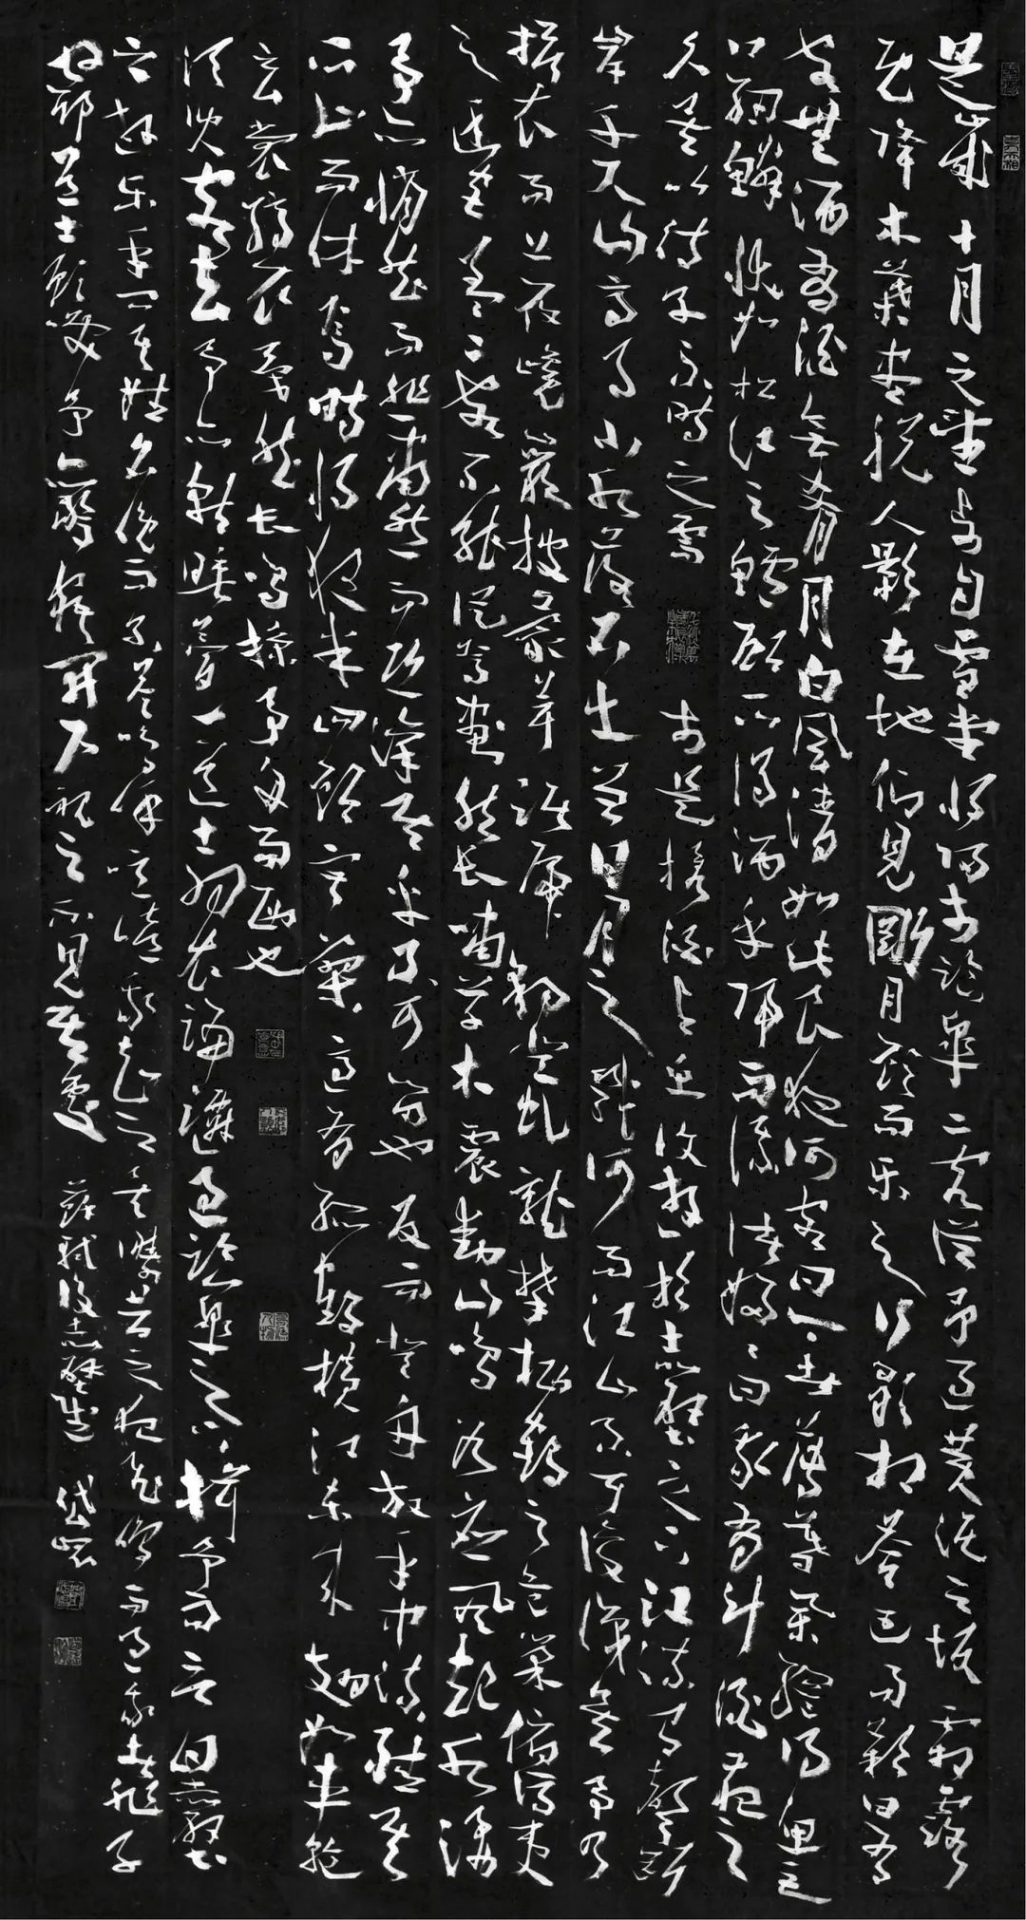 是歲十月之望步自雪堂將歸於臨皋二客從予過黃泥之坂霜露
既降木葉盡脫人影在地仰見明月顧而樂之行歌相答已而歎曰有
客無酒有酒無肴月白風清如此良夜何客曰今者薄暮舉網得魚巨
口細鱗狀如松江之鱸顧安所得酒乎歸而謀諸婦婦曰我有斗酒藏之
久矣以待子不時之需 於是攜酒與魚復遊於赤壁之下江流有聲斷
岸千尺山高月小水落石出曾日月之幾何而江山不可復識矣予乃
攝衣而上履巉巖披蒙茸踞虎豹登虬龍攀栖鶻之危巢俯馮夷
之幽宮蓋二客不能從焉劃然長嘯草木震動山鳴谷應風起水湧
予亦悄然而悲肅然而恐凜乎其不可留也反而登舟放乎中流聽其
所止而休焉時將夜半四顧寂寥適有孤鶴橫江東來翅如車輪
玄裳縞衣戛然長鳴掠予舟而西也
須臾客去予亦就睡夢一道士羽衣蹁躚過臨皋之下揖予而言曰赤壁
之遊樂乎問其姓名俛而不答嗚呼噫嘻我知之矣疇昔之夜飛鳴而過我者非子
也耶道士顧笑予亦驚寤開戶視之不見其處 蘇軾後赤壁賦